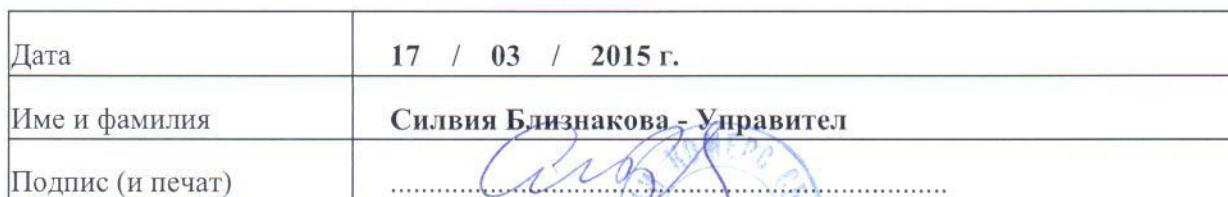 Дата 17 / 03 / 2015 г.
Име и фамилия Силвия Близнакова - Управител
Подпис (и печат) ........................................................................
КОМЕРС